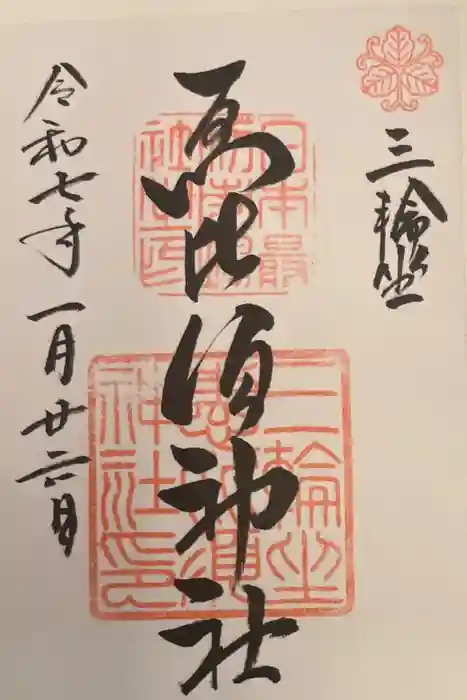 三輪坐
恵比須神社
令和七年一月廿六日
日本最
社之印
三輪坐
恵比須
神社印